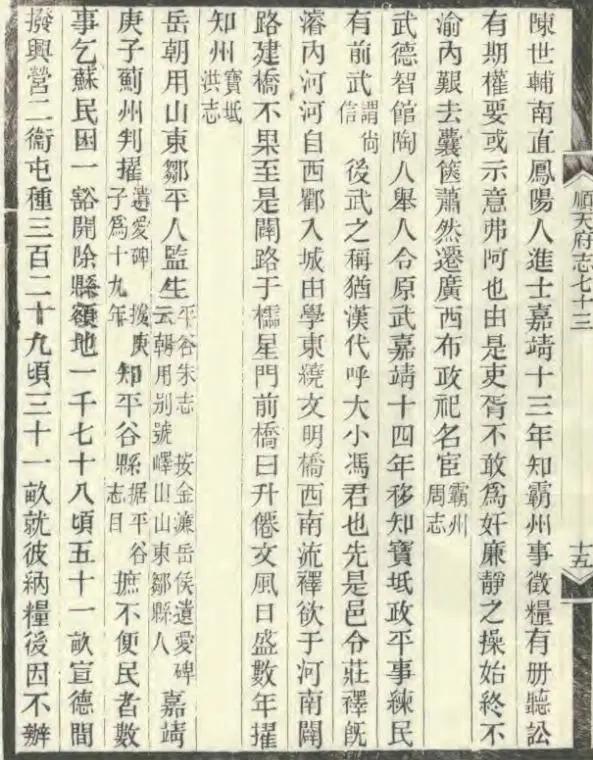 順天府志七十三
十五
陳世輔南直鳳陽人進士嘉靖十三年知霸州事徵糧有册聽訟
有期權要或示意弗阿也由是吏胥不敢爲奸廉靜之操始終不
渝內艱去囊篋蕭然遷廣西布政祀名宦霸州周志
武德智館陶人舉人令原武嘉靖十四年移知寶坻政平事練民
有前武謂尙信後武之稱猶漢代呼大小馮君也先是邑令莊襗旣
濬內河河自西鄽入城由學東繞文明橋西南流襗欲于河南闢
路建橋不果至是闢路于櫺星門前橋曰升僊文風日盛數年擢
知州寶坻洪志
岳朝用山東鄒平人監生平谷朱志 按金濂岳侯遺愛碑云朝用別號嶧山山東鄒縣人嘉靖
庚子薊州判擢遺愛碑 按庚子爲十九年知平谷縣据平谷志目摭不便民者數
事乞蘇民困一豁開除縣額地一千七十八頃五十一畝宣德間
撥興營二衞屯種三百二十九頃三十一畝就彼納糧後因不辦